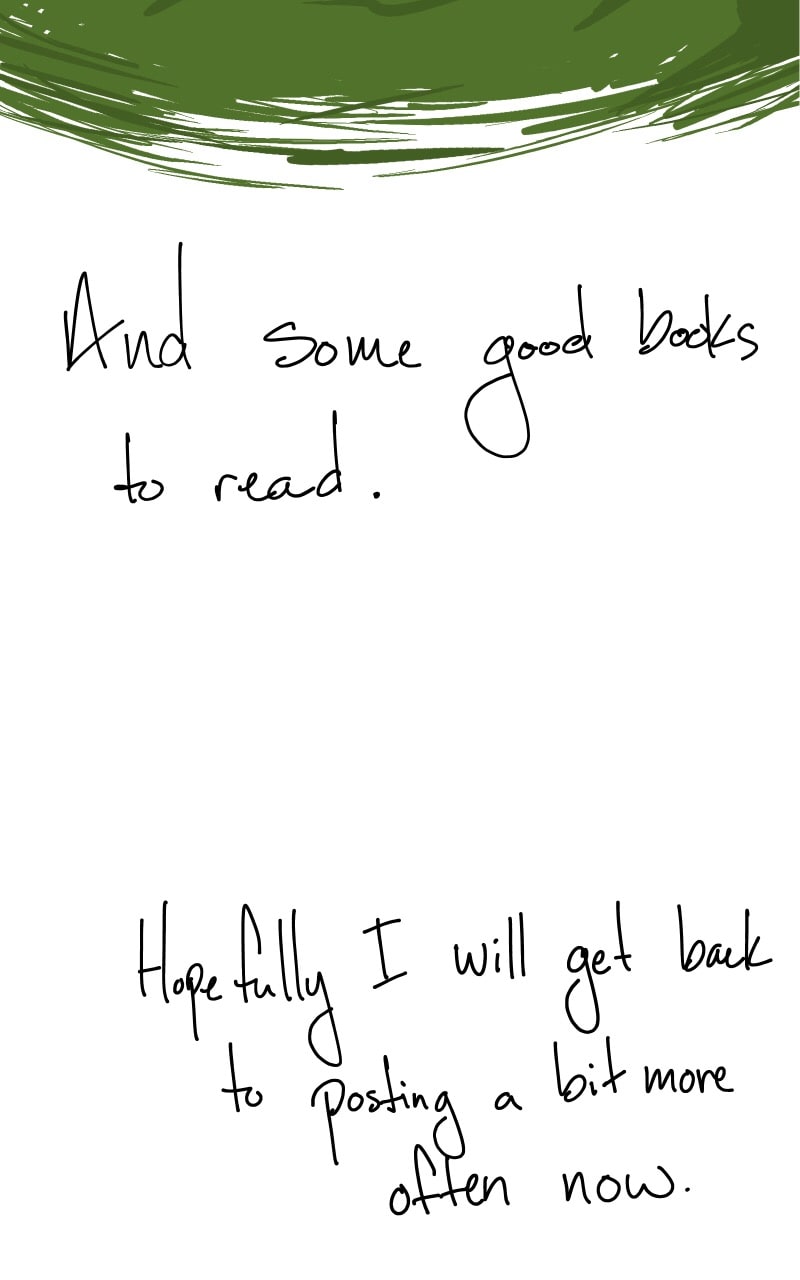 And some good books
to read.
Hopefully I will get back
to posting a bit more
often now.